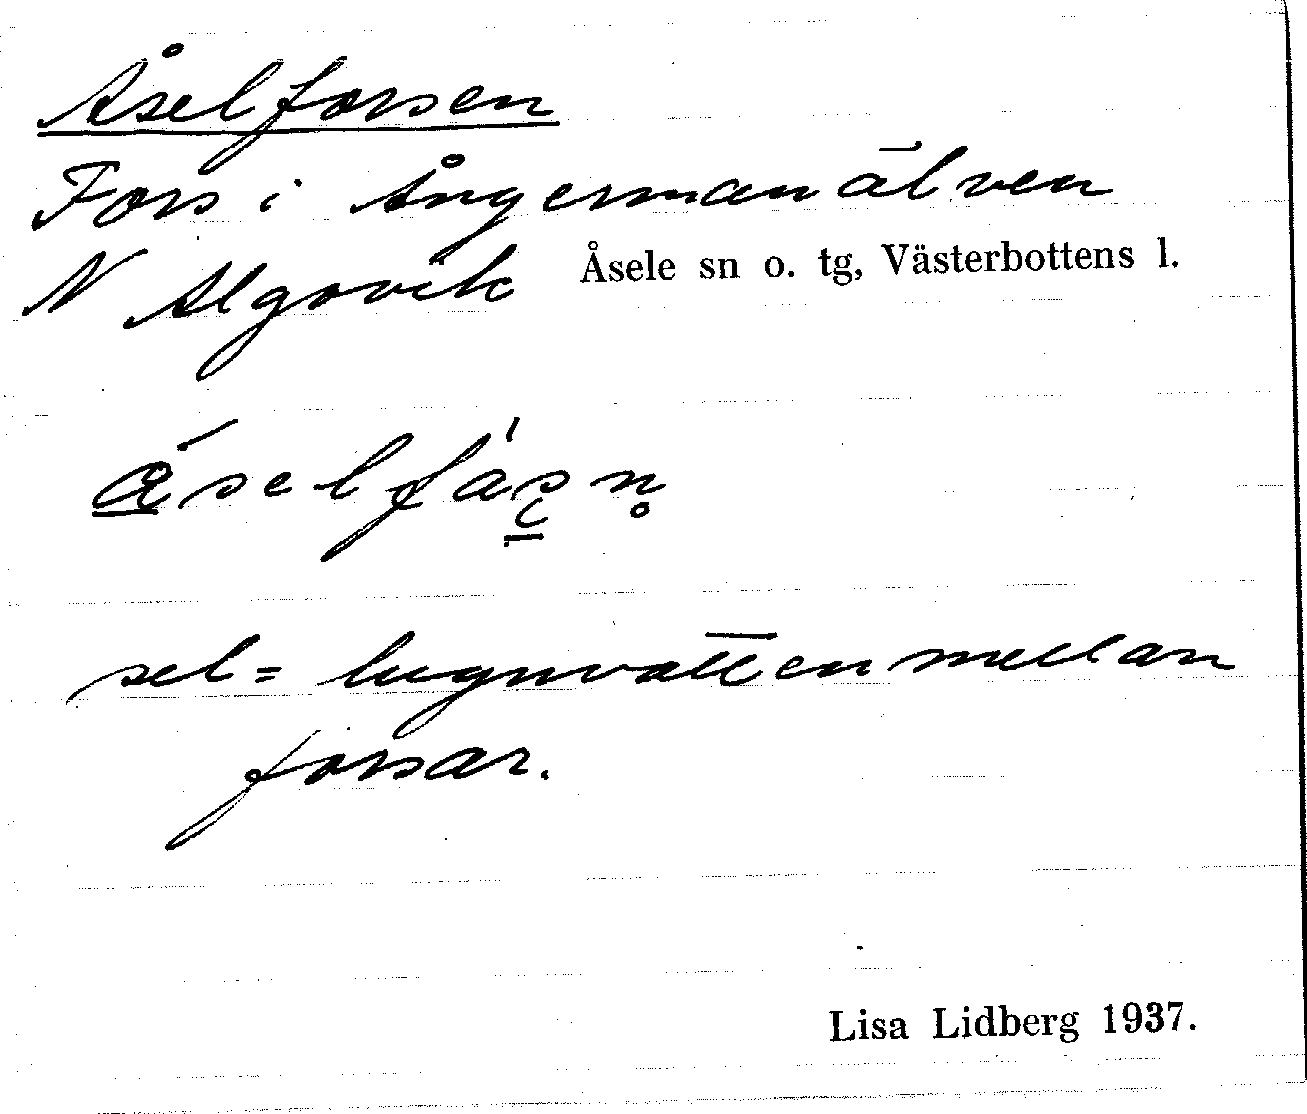 Åselforsen
Fors i Ångermanälven
N Algovik Åsele sn o. tg, Västerbottens l.
sel = lugnvatten mellan
forsar.
Lisa Lidberg 1937.